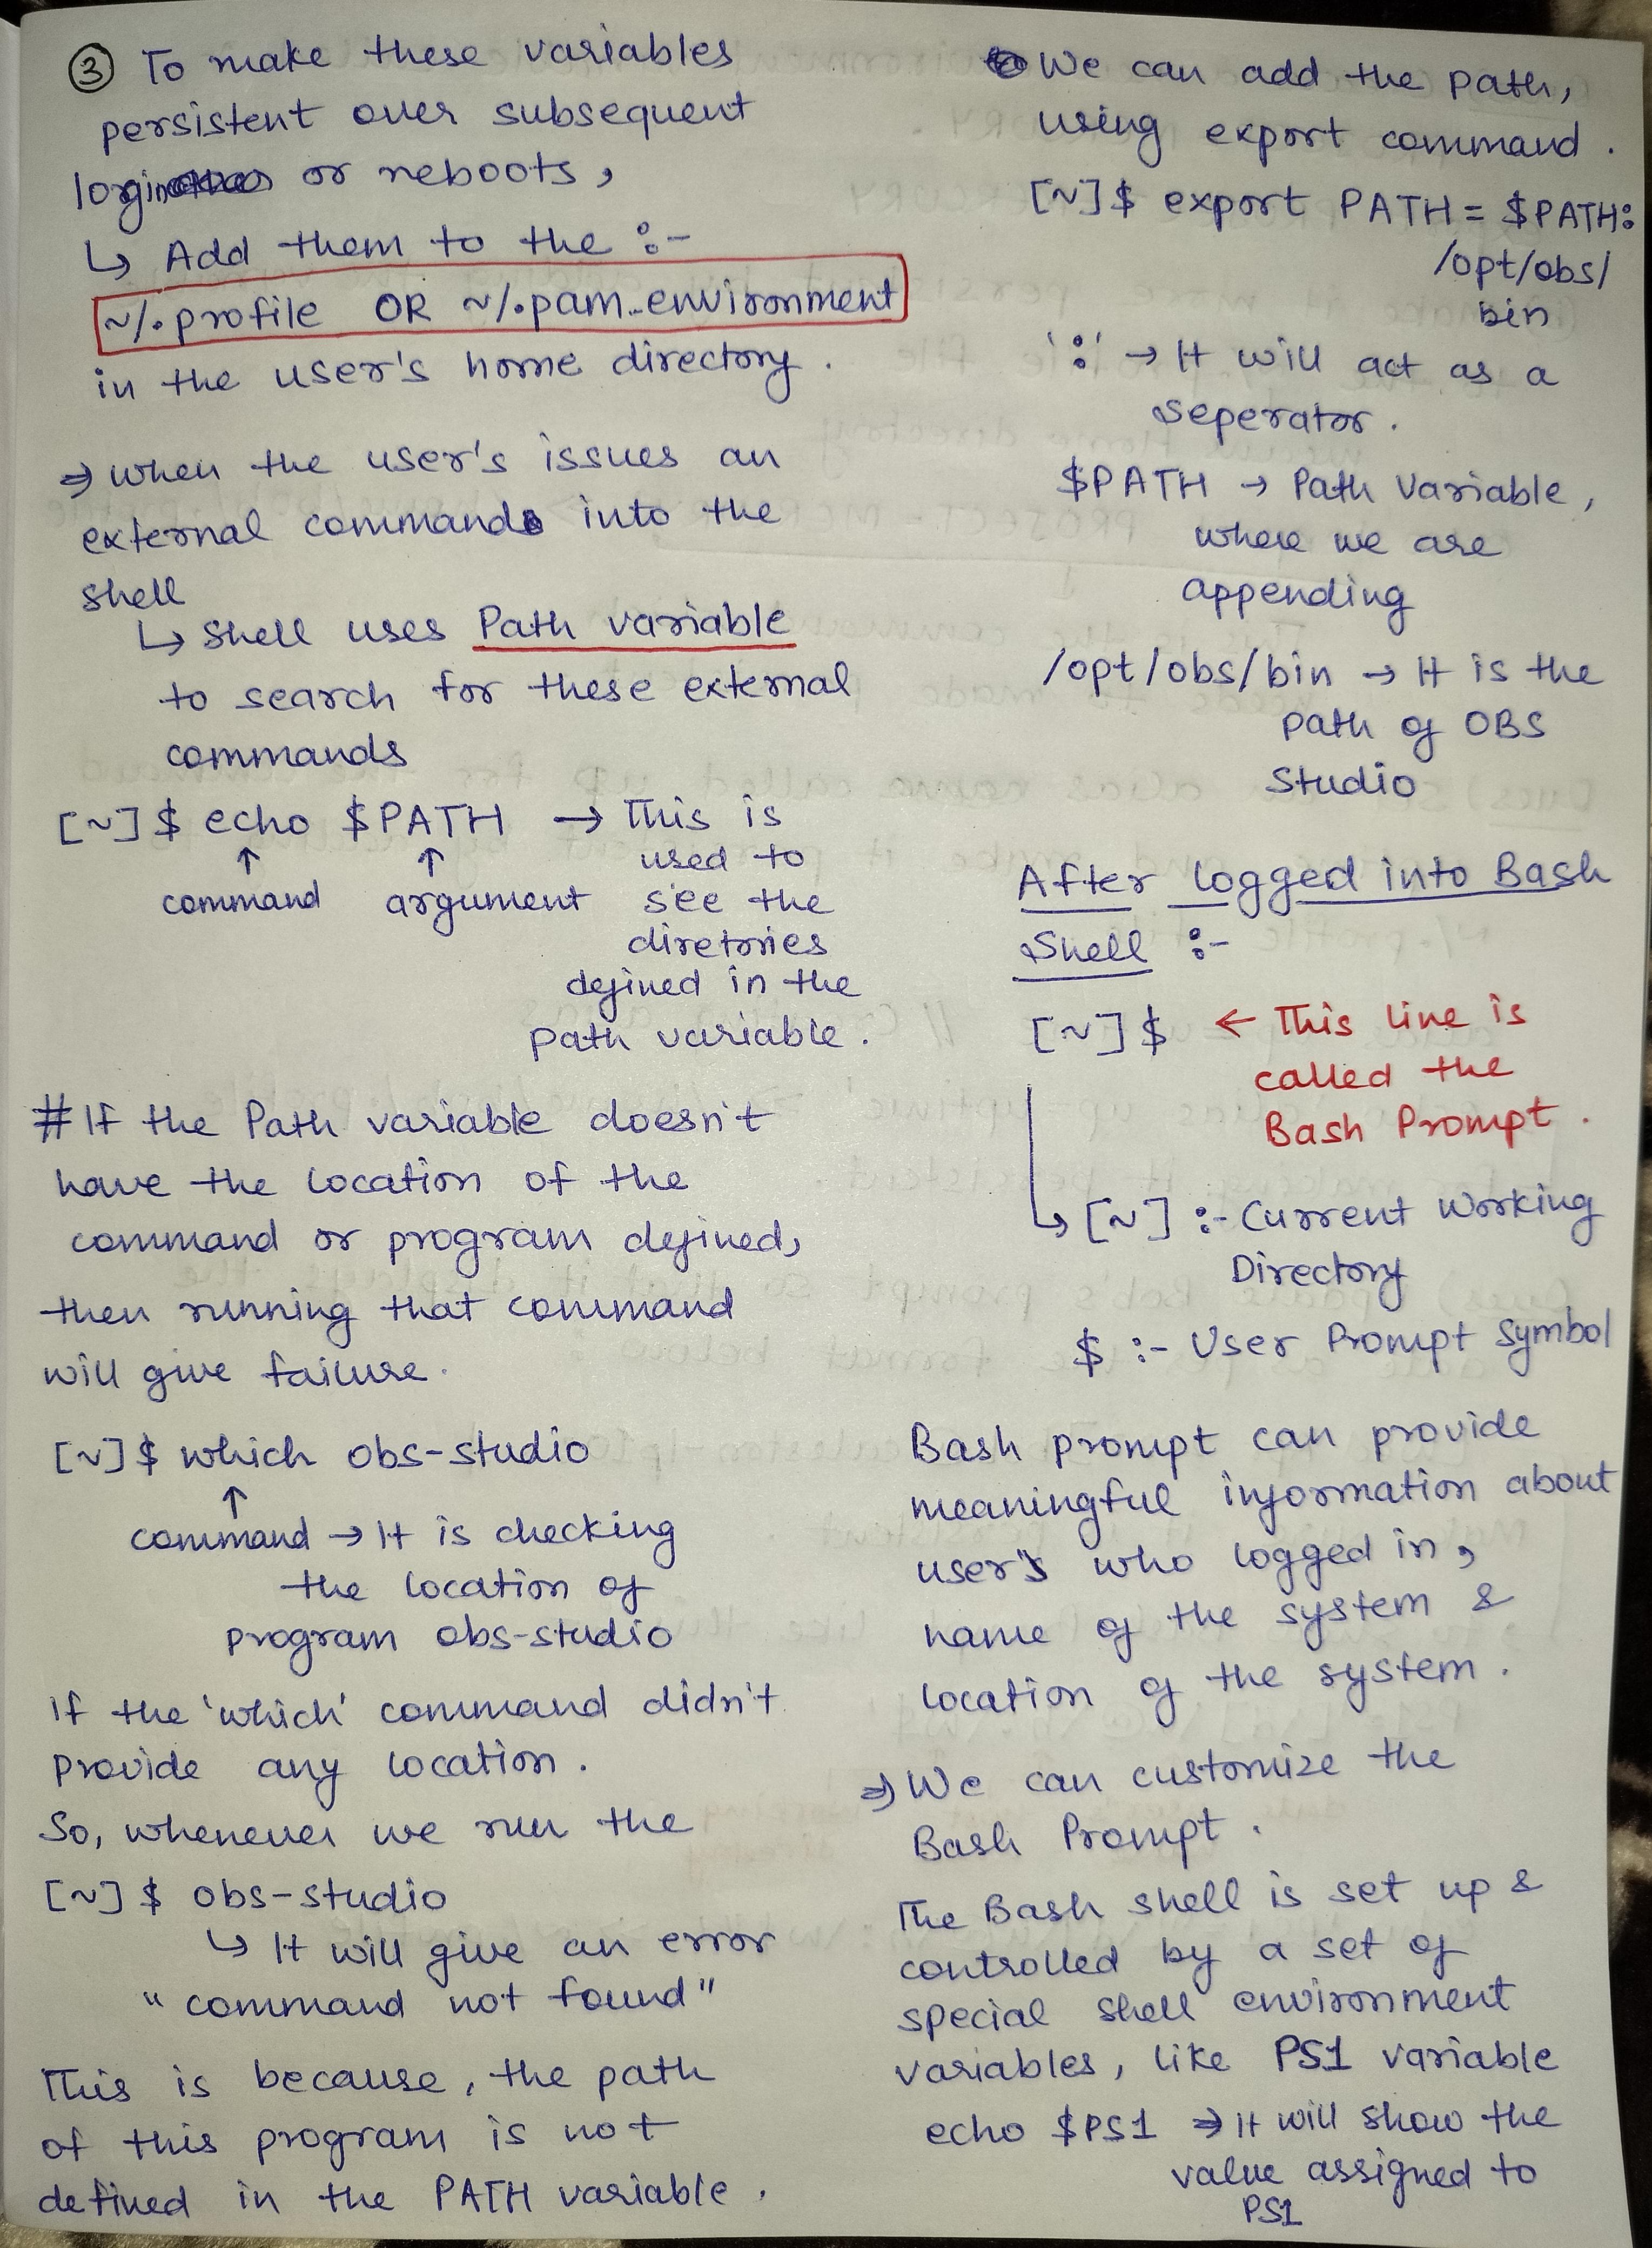 ③ To make these variables
persistent over subsequent
login or reboots,
↳ Add them to the :-
~/.profile OR ~/.pam_environment
in the user's home directory.
⇒ when the user's issues an
external command into the
shell
↳ Shell uses Path variable
to search for these external
commands
[~]$ echo $PATH → This is
used to
↑ ↑
command argument see the
diretories
defined in the
Path variable.
# If the Path variable doesn't
have the location of the
command or program defined,
then running that command
will give failure.
[~]$ which obs-studio
↑
command → It is checking
the location of
program obs-studio
If the 'which' command didn't
Provide any location.
So, whenever we run the
[~]$ obs-studio
↳ It will give an error
"command not found"
This is because, the path
of this program is not
defined in the PATH variable.
We can add the Path,
using export command.
[~]$ export PATH = $PATH:
/opt/obs/
bin
':' → It will act as a
seperator.
$PATH → Path Variable,
where we are
appending
/opt/obs/bin → It is the
path of OBS
Studio
After logged into Bash
Shell :-
[~]$ ← This line is
called the
Bash Prompt.
↳ [~] :- Current Working
Directory
$ :- User Prompt Symbol
Bash prompt can provide
meaningful information about
user's who logged in,
name of the system &
location of the system.
⇒ We can customize the
Bash Prompt.
The Bash shell is set up &
controlled by a set of
special shell environment
variables, like PS1 variable
echo $PS1 ⇒ It will show the
value assigned to
PS1